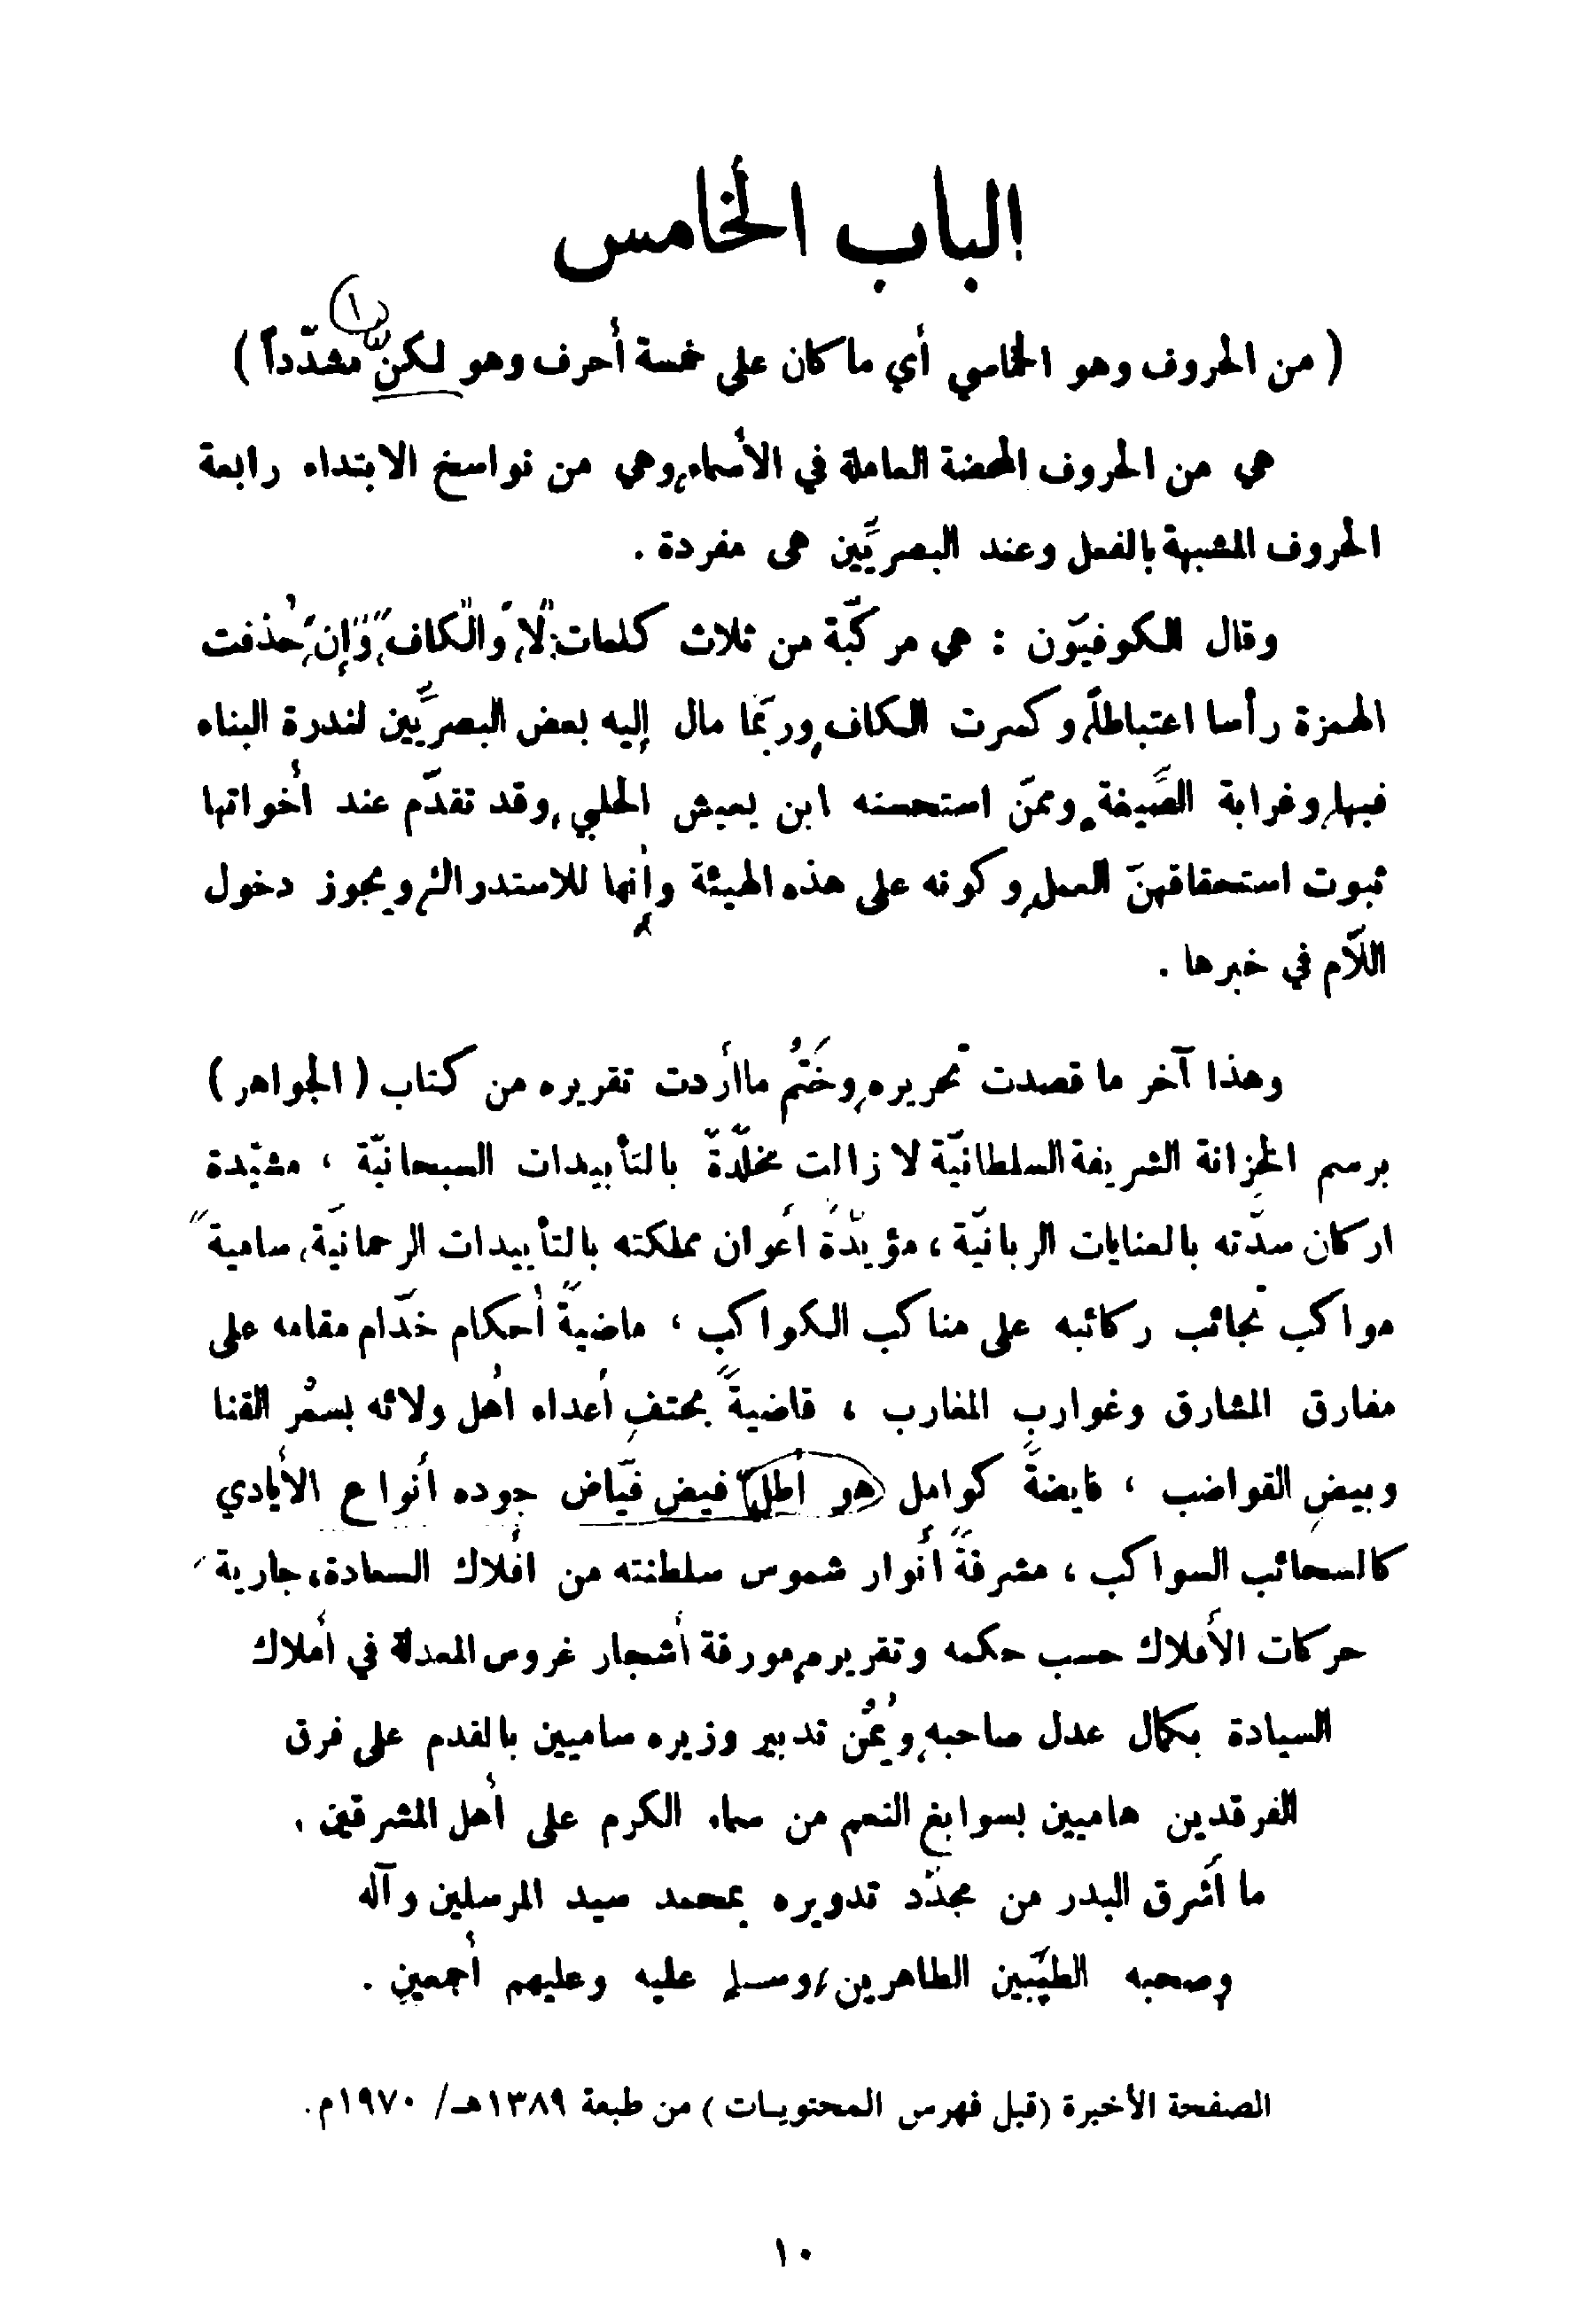 الباب الخامس
١
( من الحروف وهو الخماسي أي ما كان على خمسة أحرف وهو لكنّ مشدّداً )
هي من الحروف المحضة العاملة في الأسماء، وهي من نواسخ الابتداء رابعة
الحروف المشبهة بالفعل وعند البصريّين هي مفردة .
وقال الكوفيّون : هي مركّبة من ثلاث كلمات: "لا"، و"الكاف"، و"إن"، حُذفت
الهمزة رأسا اعتباطاً، وكسرت الكاف، وربّما مال إليه بعض البصريّين لندرة البناء
فيها، وغرابة الصّيغة. وممّن استحسنه ابن يعيش الحلبي، وقد تقدّم عند أخواتها
ثبوت استحقاقهنّ العمل، وكونه على هذه الهيئة وإنها للاستدراك، ويجوز دخول
اللّام في خبرها .
وهذا آخر ما قصدت تحريره، وخَتْمُ ما أردت تقريره من كتاب ( الجواهر )
برسم الخزانة الشريفة السلطانيّة لا زالت مخلّدةً بالتأبيدات السبحانيّة ، مشيّدة
اركان سدّته بالعنايات الربانيّة ، مؤيّدةً أعوان مملكته بالتأييدات الرحمانيّة، ساميةً
مواكب نجائب ركائبه على مناكب الكواكب ، ماضيةً أحكام خدّام مقامه على
مفارق المشارق وغوارب المغارب ، قاضيةً بحتفِ أعداء أهل ولائه بسمُر القنا
وبيضِ القواضب ، فايضةً كوامل هو أطل فيض فيّاض جوده أنواع الأيادي
كالسحائب السواكب ، مشرقةً أنوار شموس سلطنته من افلاك السعادة، جارية
حركات الأملاك حسب حكمه وتقريره، مورقة أشجار غروس المعدلة في أملاك
السيادة بكمال عدل صاحبه، ويُمْن تدبير وزيره ساميين بالقدم على فرق
الفرقدين هاميين بسوابغ النعم من سماء الكرم على أهل المشرقين .
ما أشرق البدر من مجدّد تدويره بمحمد سيد المرسلين وآله
وصحبه الطيّبين الطاهرين، وسلم عليه وعليهم أجمعين .
الصفحة الأخيرة (قبل فهرس المحتويات ) من طبعة ١٣٨٩هـ/ ١٩٧٠م.
١٠